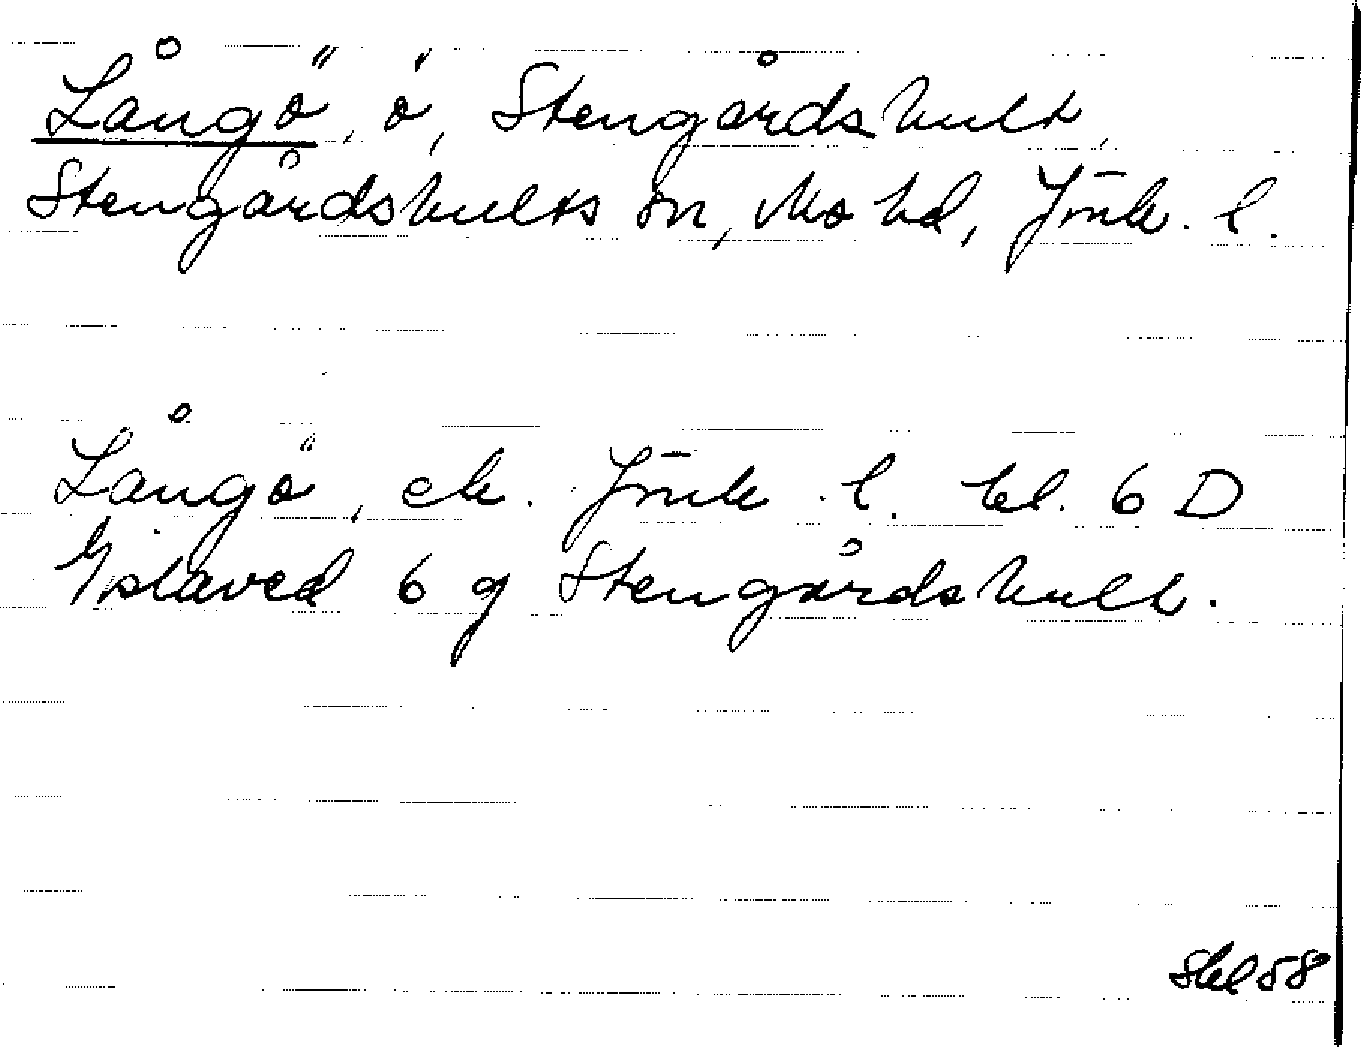 Långö, ö, Stengårdshult,
Stengårdshults sn, Mo hd, Jönk. l.
Långö, ek. Jönk. l. bl. 6 D
Gislaved 6 g Stengårdshult.